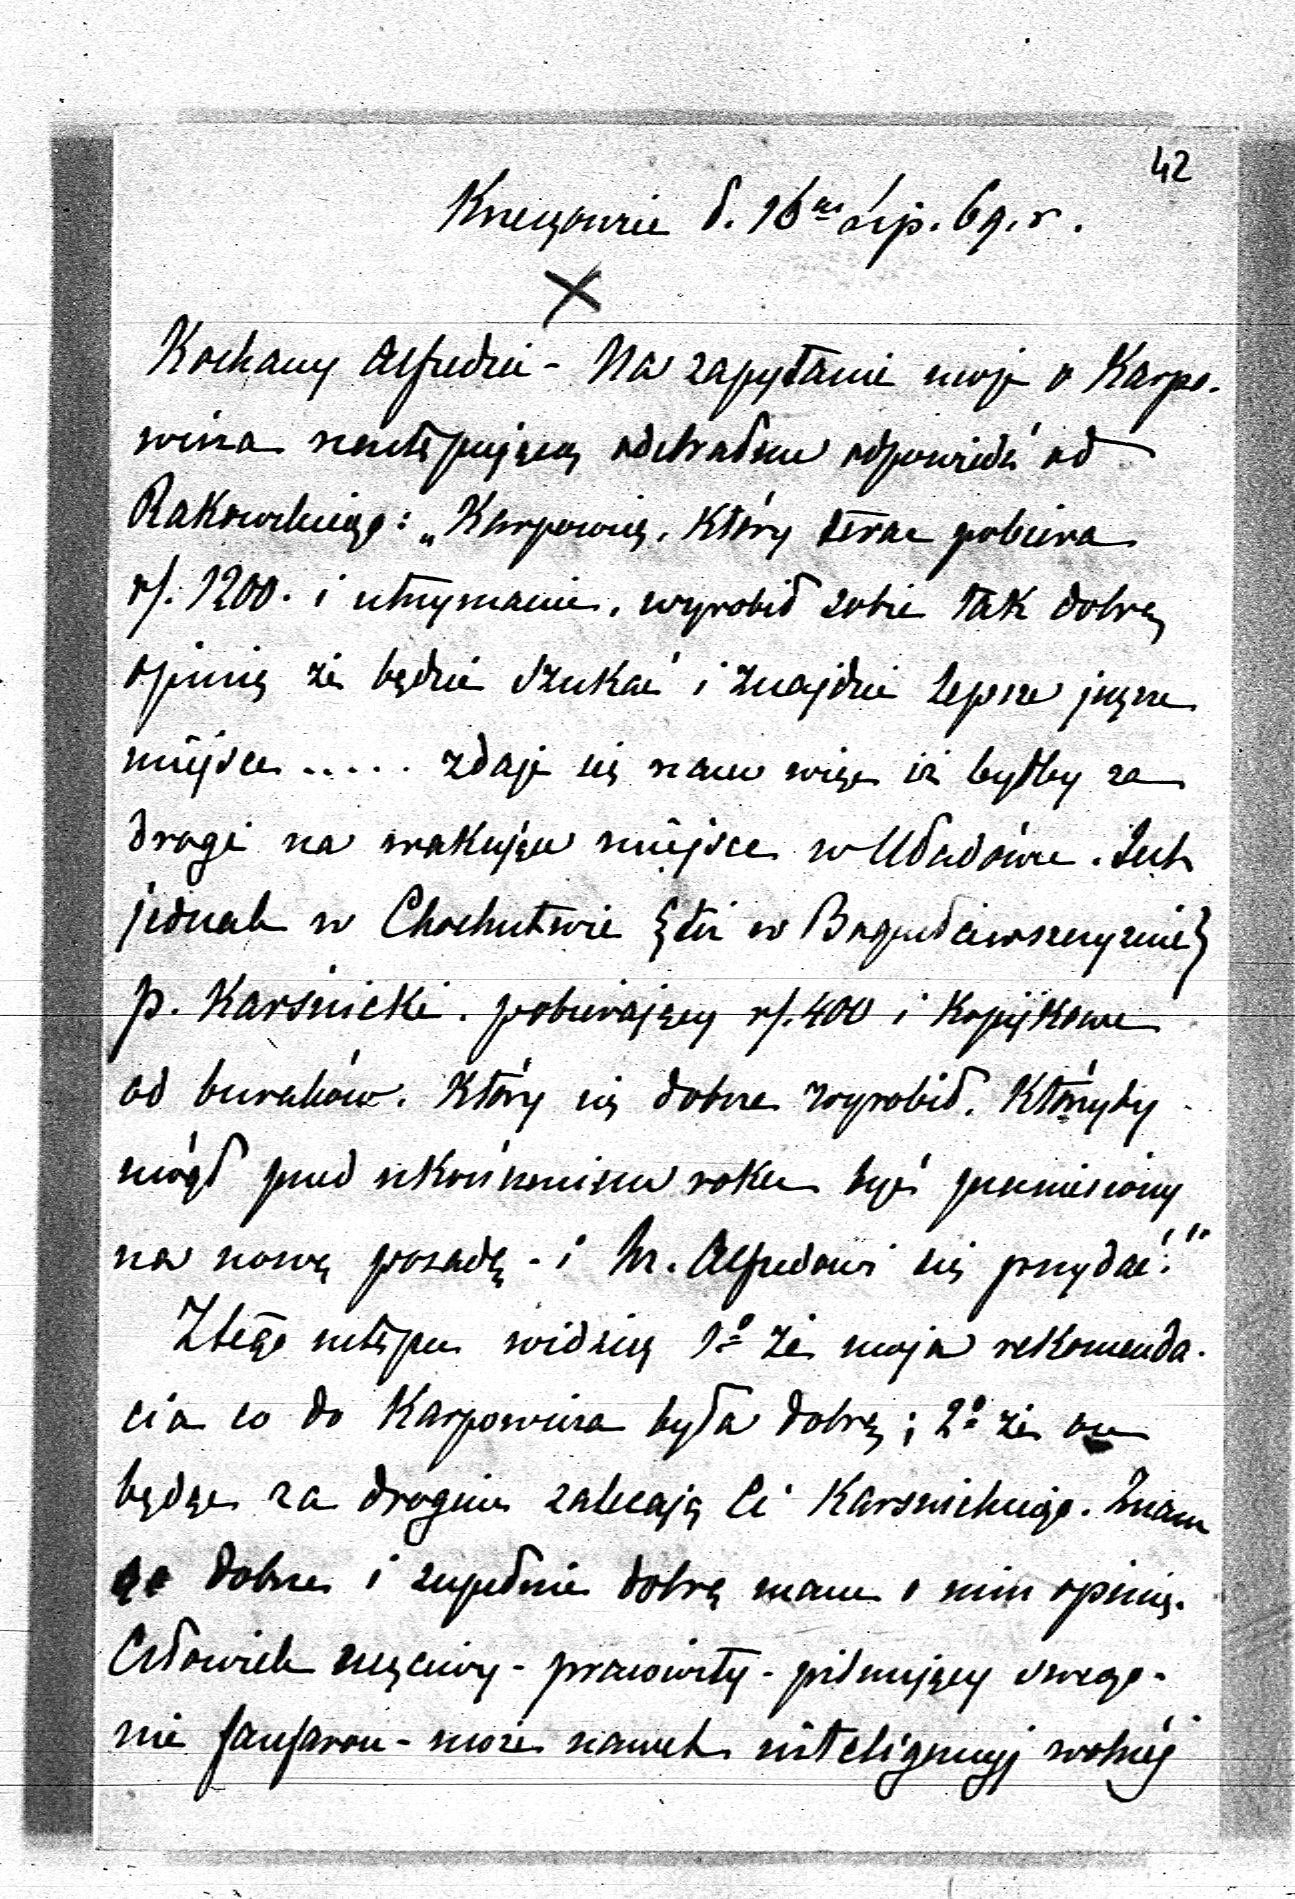 42
d. 16 69. r.
Kochany Alfredzie - Na zapytanie moje o Karpo-
wicza następującą odebrałem odpowiedź od
Rakowskiego: „Karpowicz, który teraz pobiera
rs. 1200. i utrzymanie, wyrobił sobie tak dobrą
opinię że będzie szukać i znajdzie lepsze jeszcze
miejsce ..... zdaje się nam więc iż byłby za
drogi na wakujące miejsce w Uładówce. Jest
jednak w {
p. Karśnicki. pobierający rs. 400 i kopijkowe
od buraków. Który się dobrze wyrobił. Któryby
mógł przed ukończeniem roku być przeniesiony
na nową posadę - i hr. Alfredowi się przydać."
Z tego ustępu widzisz 1º że moja rekomenda-
cia co do Karpowicza była dobrą; 2º że on
będąc za drogim zalecają Ci Karsnickiego. Znam
go dobrze i zupełnie dobrą mam o nim opinię.
Człowiek uczciwy - pracowity - pilnujący swego -
nie fanfaron - może nawet inteligencyj wolnéj